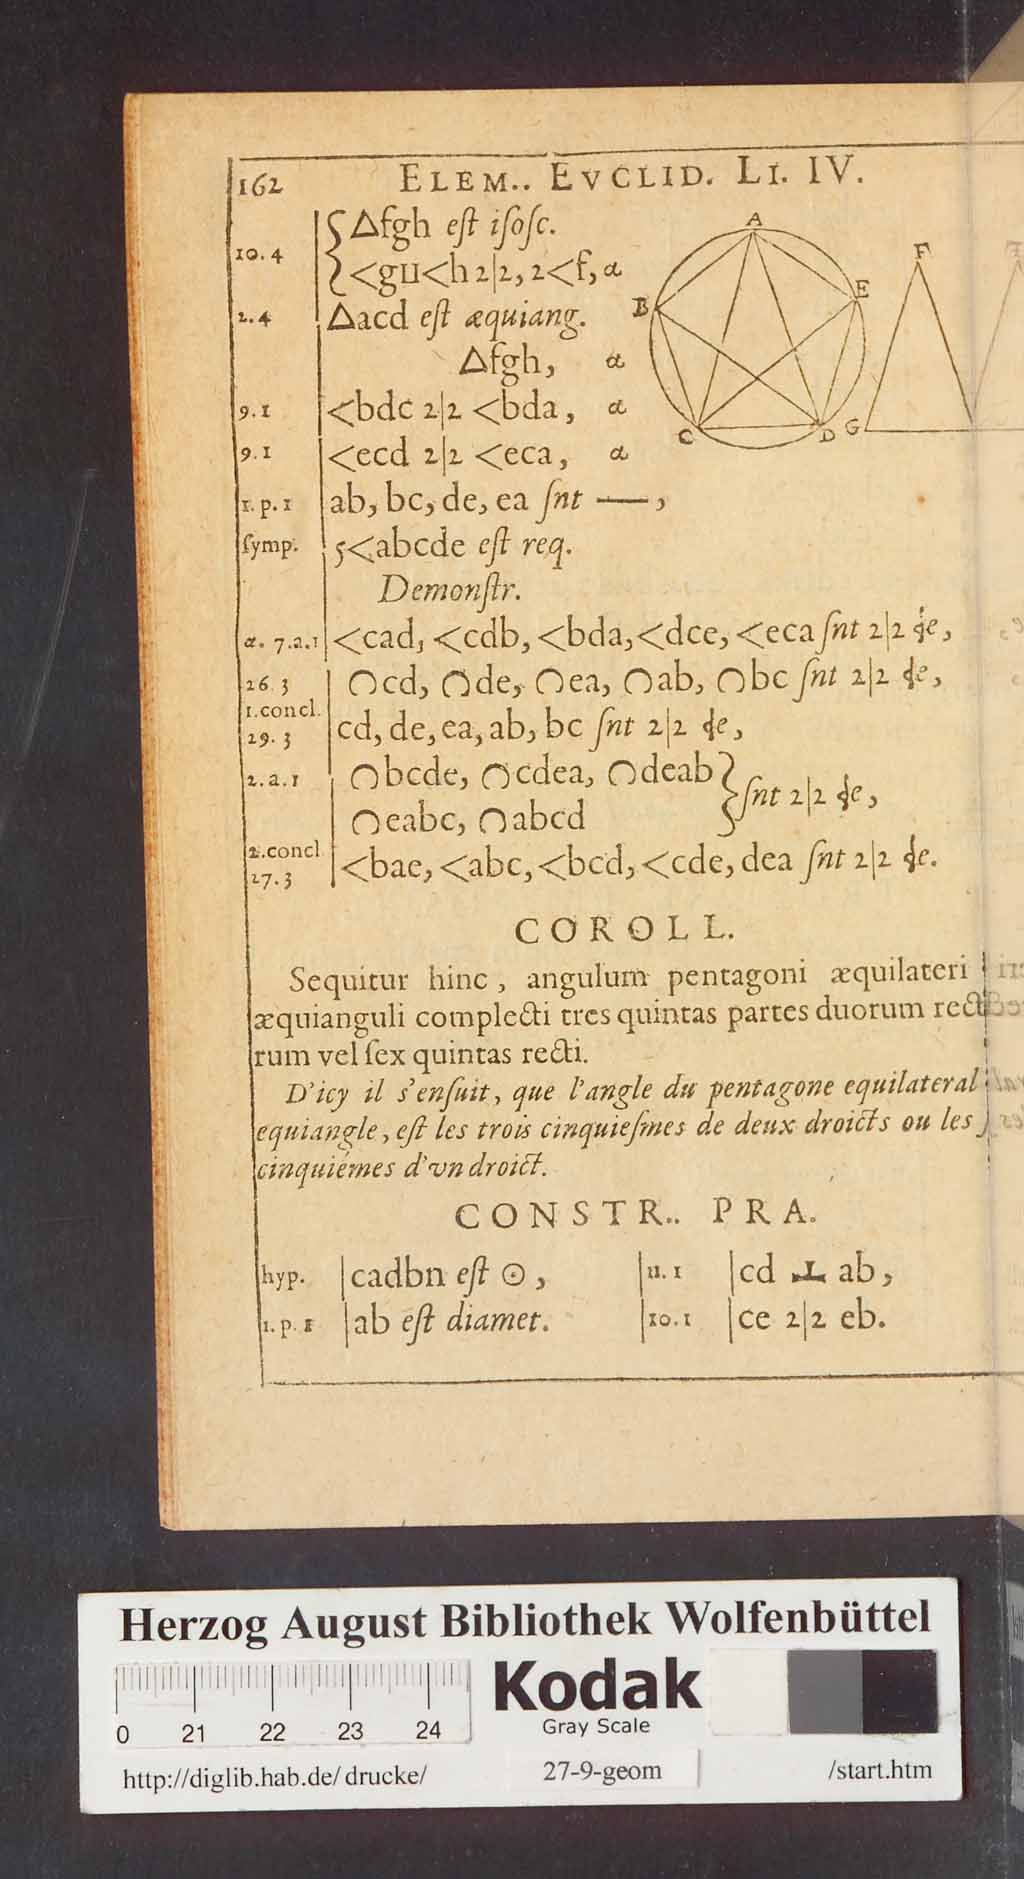 162 ELEM.. EVCLID. LI. IV.
△fgh eſt iſoſc.
10. 4
<gu<h 2|2, 2<f, α
2. 4 △acd eſt æquiang.
△fgh, α
9. 1 <bdc 2|2 <bda, α
9. 1 <ecd 2|2 <eca, α
1. p. 1 ab, bc, de, ea ſnt —,
ſymp. 5<abcde eſt req.
A
B
E
C
D
F
G
Demonſtr.
α. 7.a.1 <cad, <cdb, <bda, <dce, <eca ſnt 2|2 de,
26. 3 ⌒cd, ⌒de, ⌒ea, ⌒ab, ⌒bc ſnt 2|2 de,
1.concl.
29. 3 cd, de, ea, ab, bc ſnt 2|2 de,
2. a. 1 ⌒bcde, ⌒cdea, ⌒deab
⌒eabc, ⌒abcd } ſnt 2|2 de,
2.concl
27. 3 <bae, <abc, <bcd, <cde, dea ſnt 2|2 de.
COROLL.
Sequitur hinc, angulum pentagoni æquilateri
æquianguli complecti tres quintas partes duorum recto
rum vel ſex quintas recti.
D'icy il s'enſuit, que l'angle du pentagone equilateral
equiangle, eſt les trois cinquieſmes de deux droicts ou les
cinquiémes d'vn droict.
CONSTR.. PRA.
hyp. |cadbn eſt ⊙, |11. 1 |cd ⊥ ab,
1. p. 1 |ab eſt diamet. |10. 1 |ce 2|2 eb.
Herzog August Bibliothek Wolfenbüttel
0 21 22 23 24
Kodak
Gray Scale
http://diglib.hab.de/drucke/ 27-9-geom /start.htm